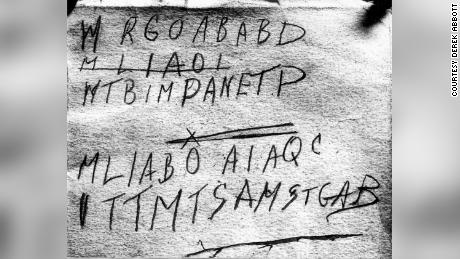 WRGOABABD
MLIAOI
WTBIMPANETP
MLIABOAIAQC
ITTMTSAMSTGAB
COURTESY DEREK ABBOTT